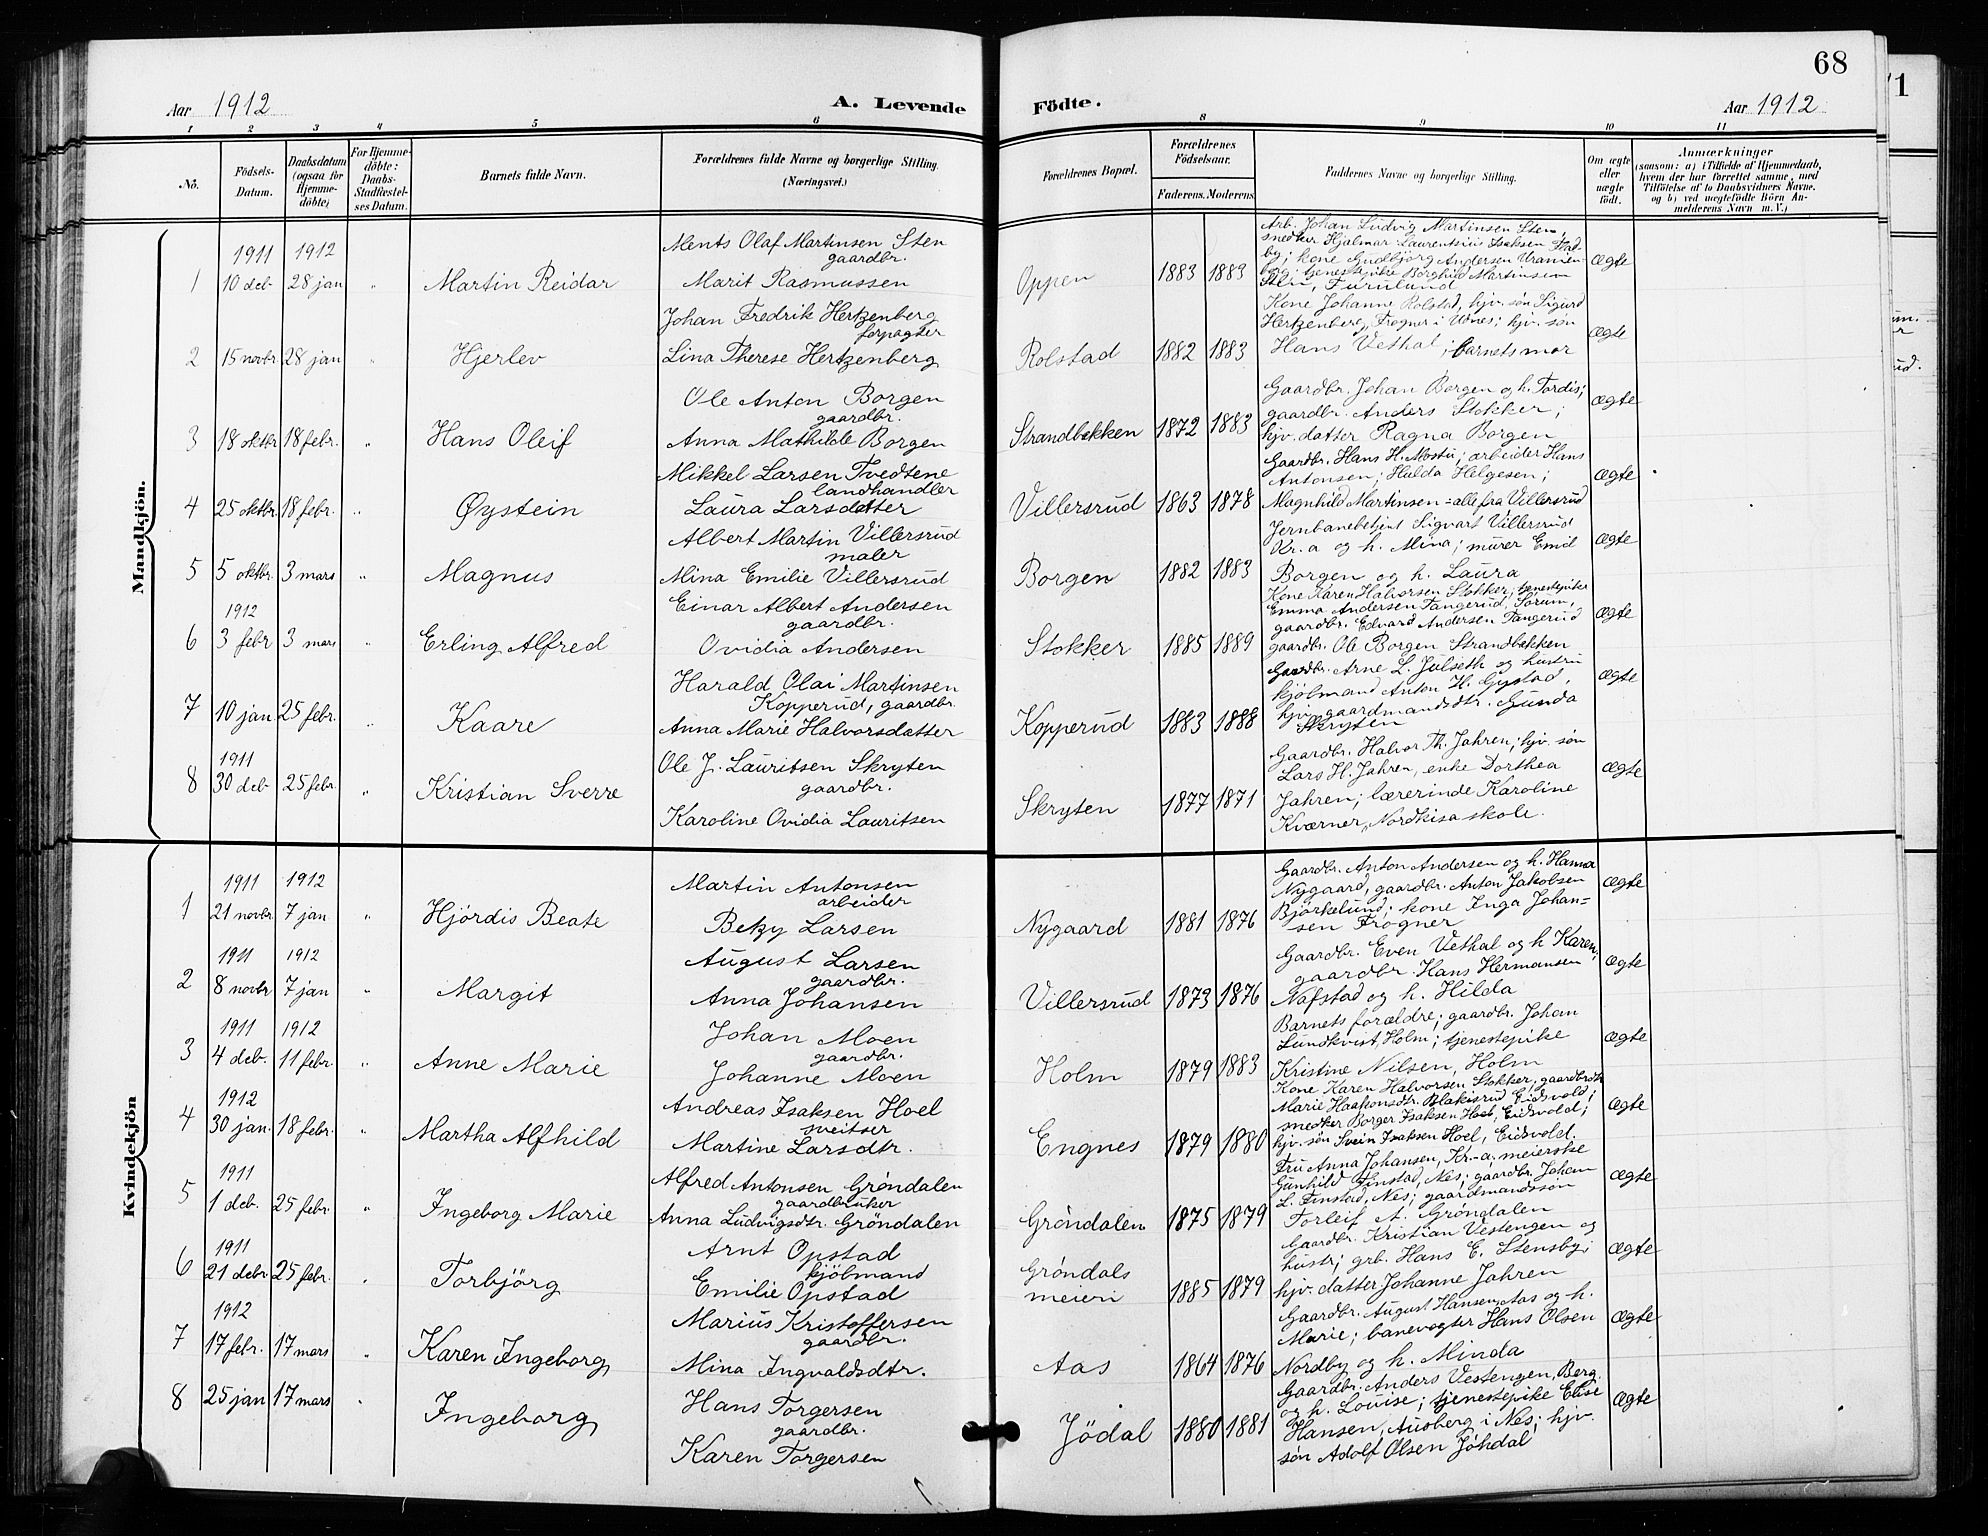 68
Aar 1912
A. Levende Fødte.
Aar 1912
1 2 3 4 5 6 8 9 10 11
No.
Födsels-Datum.
Daabsdatum (ogsaa for Hjemme-döbte)
For Hjemme-döbte: Daabs-Stadfæstel-ses Datum.
Barnets fulde Navn.
Forældrenes fulde Navne og borgerlige Stilling. (Næringsvei.)
Forældrenes Bopæl.
Forældrenes Födselsaar.
Faderens. Moderens.
Faddernes Navne og borgerlige Stilling.
Om ægte eller uægte födt.
Anmærkninger
(saasom: a) i Tilfælde af Hjemmedaab,
hvem der har forrettet samme, med
Tilföielse af to Daabsvidners Navne.
og b) ved uægtefödte Börn An-
melderens Navn m. V.)
Mandkjön.
1911 1912
1 10 deb 28 jan " Martin Reidar
Ments Olaf Martinsen Sten
gaardbr.
Marit Rasmussen
Oppen 1883 1883
Arb. Johan Ludvig Martinsen Sten,
snedker Hjalmar Laurentsius Isaksen Stad-
by; kone Gudbjörg Andersen Uranien-
borg; tjenestepike Borghild Martinsen
Sten, Furulund
Ægte
2 15 novbr 28 jan " Hjerlev
Johan Fredrik Hertzenberg
forpagter
Lina Therese Hertzenberg
Rolstad 1882 1883
Kone Johanne Rolstad, hjv. søn Sigurd
Hertzenberg, Frogner i Udnes; hjv. søn
Hans Vethal; barnets mor
Ægte
3 18 oktbr 18 febr. " Hans Oleif
Ole Anton Borgen
gaardbr.
Anna Mathilde Borgen
Strandbækken 1872 1883
Gaardbr. Johan Borgen og h. Tordis;
gaardbr. Anders Stokker;
hjv. datter Ragna Borgen
Ægte
4 25 oktbr. 18 febr. " Øystein
Mikkel Larsen Tvedtene
landhandler
Laura Larsdatter
Villersrud 1863 1878
Gaardbr. Hans H. Mostu; arbeider Hans
Antonsen; Hulda Helgesen;
Magnhild Martinsen = alle fra Villersrud
Ægte
5 5 oktbr. 3 mars " Magnus
Albert Martin Villersrud
maler
Mina Emilie Villersrud
Borgen 1882 1883
Jernbanebetjent Sigvart Villersrud
Kr.a og h. Mina; murer Emil
Borgen og h. Laura
Ægte
1912
6 3 febr 3 mars " Erling Alfred
Einar Albert Andersen
gaardbr.
Ovidia Andersen
Stokker 1885 1889
Kone Karen Halvorsen Stokker; tjenestepike
Emma Andersen Tangerud, Sorum,
gaardbr. Edvard Andersen Tangerud
gaardbr. Ole Borgen Strandbækken
Ægte
7 10 jan 25 febr. " Kaare
Harald Olai Martinsen
Kopperud, gaardbr.
Anna Marie Halvorsdatter
Kopperud 1883 1888
Gaardbr. Arne L. Julseth og hustru
kjöbmand Anton H. Gystad,
hjv. gaardmandsdtr. Gunda
Skryten
Ægte
1911
8 30 deb 25 febr. " Kristian Sverre
Ole J. Lauritsen Skryten
gaardbr.
Karoline Ovidia Lauritsen
Skryten 1877 1871
Gaardbr. Halvor Th. Jahren; hjv. søn
Lars H. Jahren, enke Dorthea
Jahren; lærerinde Karoline
Kværner, Nordkisa skole.
Ægte
Kvindekjön
1911 1912
1 21 novbr. 7 jan " Hjördis Beate
Martin Antonsen
arbeider
Betzy Larsen
Nygaard 1881 1876
Gaardbr. Anton Andersen og h. Hanna
Nygaard, gaardbr. Anton Jakobsen
Björkelund; kone Inga Johan=
sen Frogner
Ægte
1911 1912
2 8 novbr 7 jan " Margit
August Larsen
gaardbr.
Anna Johansen
Villersrud 1873 1876
Gaardbr. Even Vethal og h Karen,
gaardbr. Hans Hermansen
Nafstad og h. Hilda
Ægte
1911 1912
3 4 deb. 11 febr. " Anne Marie
Johan Moen
gaardbr.
Johanne Moen
Holm 1879 1883
Barnets forældre; gaardbr. Johan
Lundkvist, Holm; tjenestepike
Kristine Nilsen, Holm
Ægte
1912
4 30 jan. 18 febr. " Martha Alfhild
Andreas Isaksen Hoel
sveitser
Martine Larsdtr.
Engnes 1879 1880
Kone Karen Halvorsen Stokker, gaardbrdtr
Marie Haakonsdtr. Blakisrud Eidsvold;
snedker Borger Isaksen Hoel, Eidsvold;
hjv. søn Svein Isaksen Hoel, Eidsvold.
Ægte
1911
5 1 deb. 25 febr. " Ingeborg Marie
Alfred Antonsen Gröndalen
gaardbruker
Anna Ludvigsdtr. Gröndalen
Gröndalen 1875 1879
Fru Anna Johansen, Kr.-a. meierske
Gunhild Finstad, Nes; gaardbr. Johan
L. Finstad, Nes; gaardmandssøn
Torleif A. Gröndalen
Ægte
1911
6 21 debr. 25 febr. " Torbjörg
Arnt Opstad
kjöbmand
Emilie Opstad
Gröndals
meieri 1885 1879
Gaardbr. Kristian Vestengen og
hustr; grb. Hans E. Stensby;
hjv. datter Johanne Jahren
Ægte
1912
7 17 febr. 17 mars " Karen Ingeborg
Marius Kristoffersen
gaardbr.
Mina Ingvaldsdtr.
Aas 1864 1876
Gaardbr. August Hansen Aas og h.
Marie; banevogter Hans Olsen
Nordby og h. Minda
Ægte
8 25 jan 17 mars " Ingeborg
Hans Torgersen
gaardbr.
Karen Torgersen
Jödal 1880 1881
Gaardbr. Anders Vestengen, Berg
og h. Louise; tjenestepike Elise
Hansen, Ausberg i Nes; hjv.
søn Adolf Olsen Jöhdal
Ægte